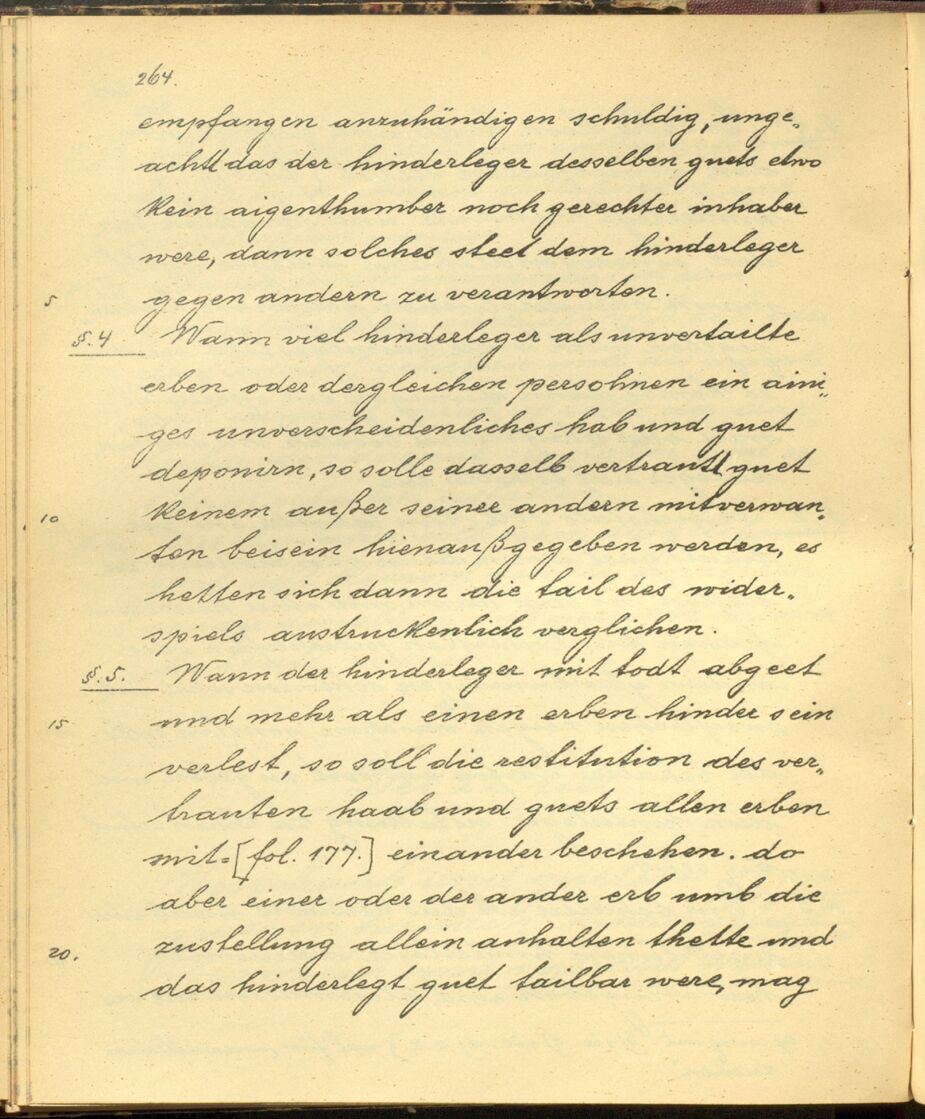 264.
empfangen anzuhändigen schuldig, unge„
achtt das der hinderleger desselben guets etwo
kein aigenthumber noch gerechter inhaber
were, dann solches steet dem hinderleger
5 gegen andern zu verantworten.
§.4 Wann viel hinderleger als unvertailte
erben oder dergleichen persohnen ein aini„
ges unverscheidenliches hab und guet
deponirn, so solle dasselb vertrautt guet
10 keinem außer seiner andern mitverwan„
ten beisein hienaußgegeben werden, es
hetten sich dann die tail des wider„
spiels austruckenlich verglichen.
§.5. Wann der hinderleger mit todt abgeet
15 und mehr als einen erben hinder sein
verlest, so soll die restitution des ver„
trauten haab und guets allen erben
mit=[fol. 177.] einander beschehen. do
aber einer oder der ander erb umb die
20. zustellung allein anhalten thette und
das hinderlegt guet tailbar were, mag